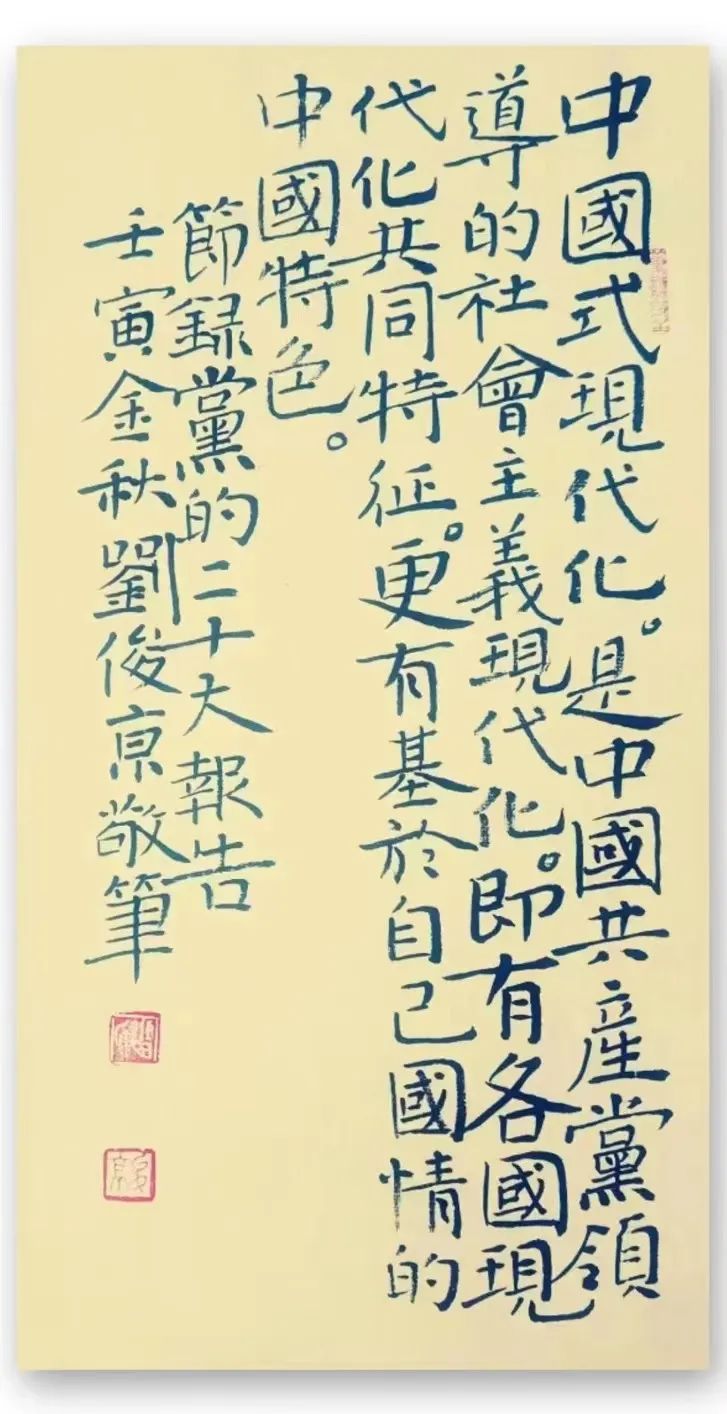 中國式現代化。是中國共産黨領
導的社會主義現代化。即有各國現
代化共同特征。更有基於自己國情的
中國特色。
節録黨的二十大報告
壬寅金秋劉俊京敬筆